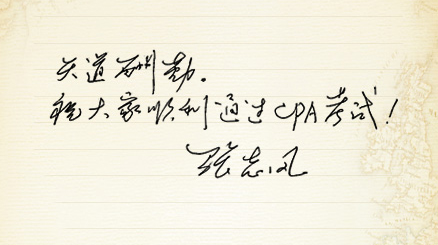 天道酬勤。
祝大家顺利通过CPA考试！
张志凤